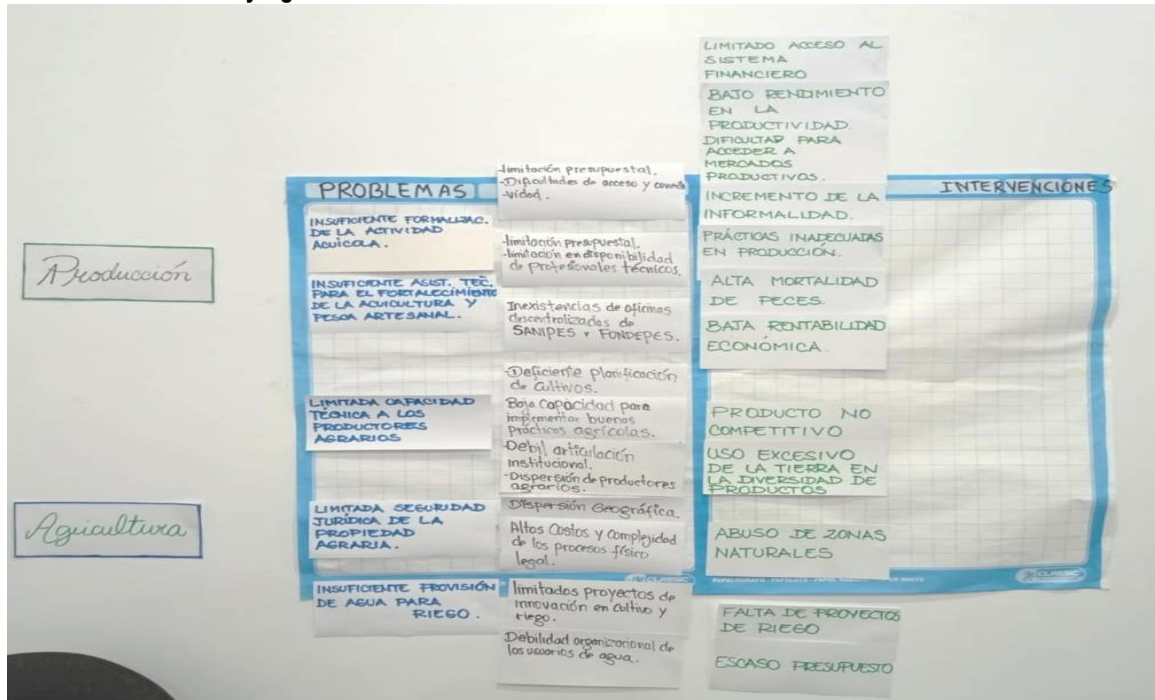 Producción
Agricultura
PROBLEMAS
INSUFICIENTE FORMALIZAC.
DE LA ACTIVIDAD
ACUÍCOLA.
INSUFICIENTE ASIST. TEC.
PARA EL FORTALECIMIENTO
DE LA ACUICULTURA Y
PESCA ARTESANAL.
LIMITADA CAPACIDAD
TÉCNICA A LOS
PRODUCTORES
AGRARIOS
LIMITADA SEGURIDAD
JURÍDICA DE LA
PROPIEDAD
AGRARIA.
INSUFICIENTE PROVISIÓN
DE AGUA PARA
RIEGO.
-limitación presupuestal.
-Dificultades de acceso y
-vidad.
-limitación presupuestal.
-limitación en disponibilidad
de profesionales técnicos.
Inexistencias de oficinas
descentralizadas de
SANIPES y FONDEPES.
-Deficiente planificación
de cultivos.
Baja Capacidad para
implementar buenas
prácticas agrícolas.
-Debil articulación
institucional.
-Dispersión de productores
agrarios.
Dispersión Geográfica.
Altos Costos y Complejidad
de los procesos físico
legal.
limitados proyectos de
innovación en cultivo y
riego.
Debilidad organizacional de
los usuarios de agua.
LIMITADO ACCESO AL
SISTEMA
FINANCIERO
BAJO RENDIMIENTO
EN LA
PRODUCTIVIDAD.
DIFICULTAD PARA
ACCEDER A
MERCADOS
PRODUCTIVOS.
INCREMENTO DE LA
INFORMALIDAD.
PRÁCTICAS INADECUADAS
EN PRODUCCIÓN.
ALTA MORTALIDAD
DE PECES.
BAJA RENTABILIDAD
ECONÓMICA.
PRODUCTO NO
COMPETITIVO
USO EXCESIVO
DE LA TIERRA EN
LA DIVERSIDAD DE
PRODUCTOS
ABUSO DE ZONAS
NATURALES
FALTA DE PROYECTOS
DE RIEGO
ESCASO PRESUPUESTO
INTERVENCIONES
CLASSIC
CLASSIC